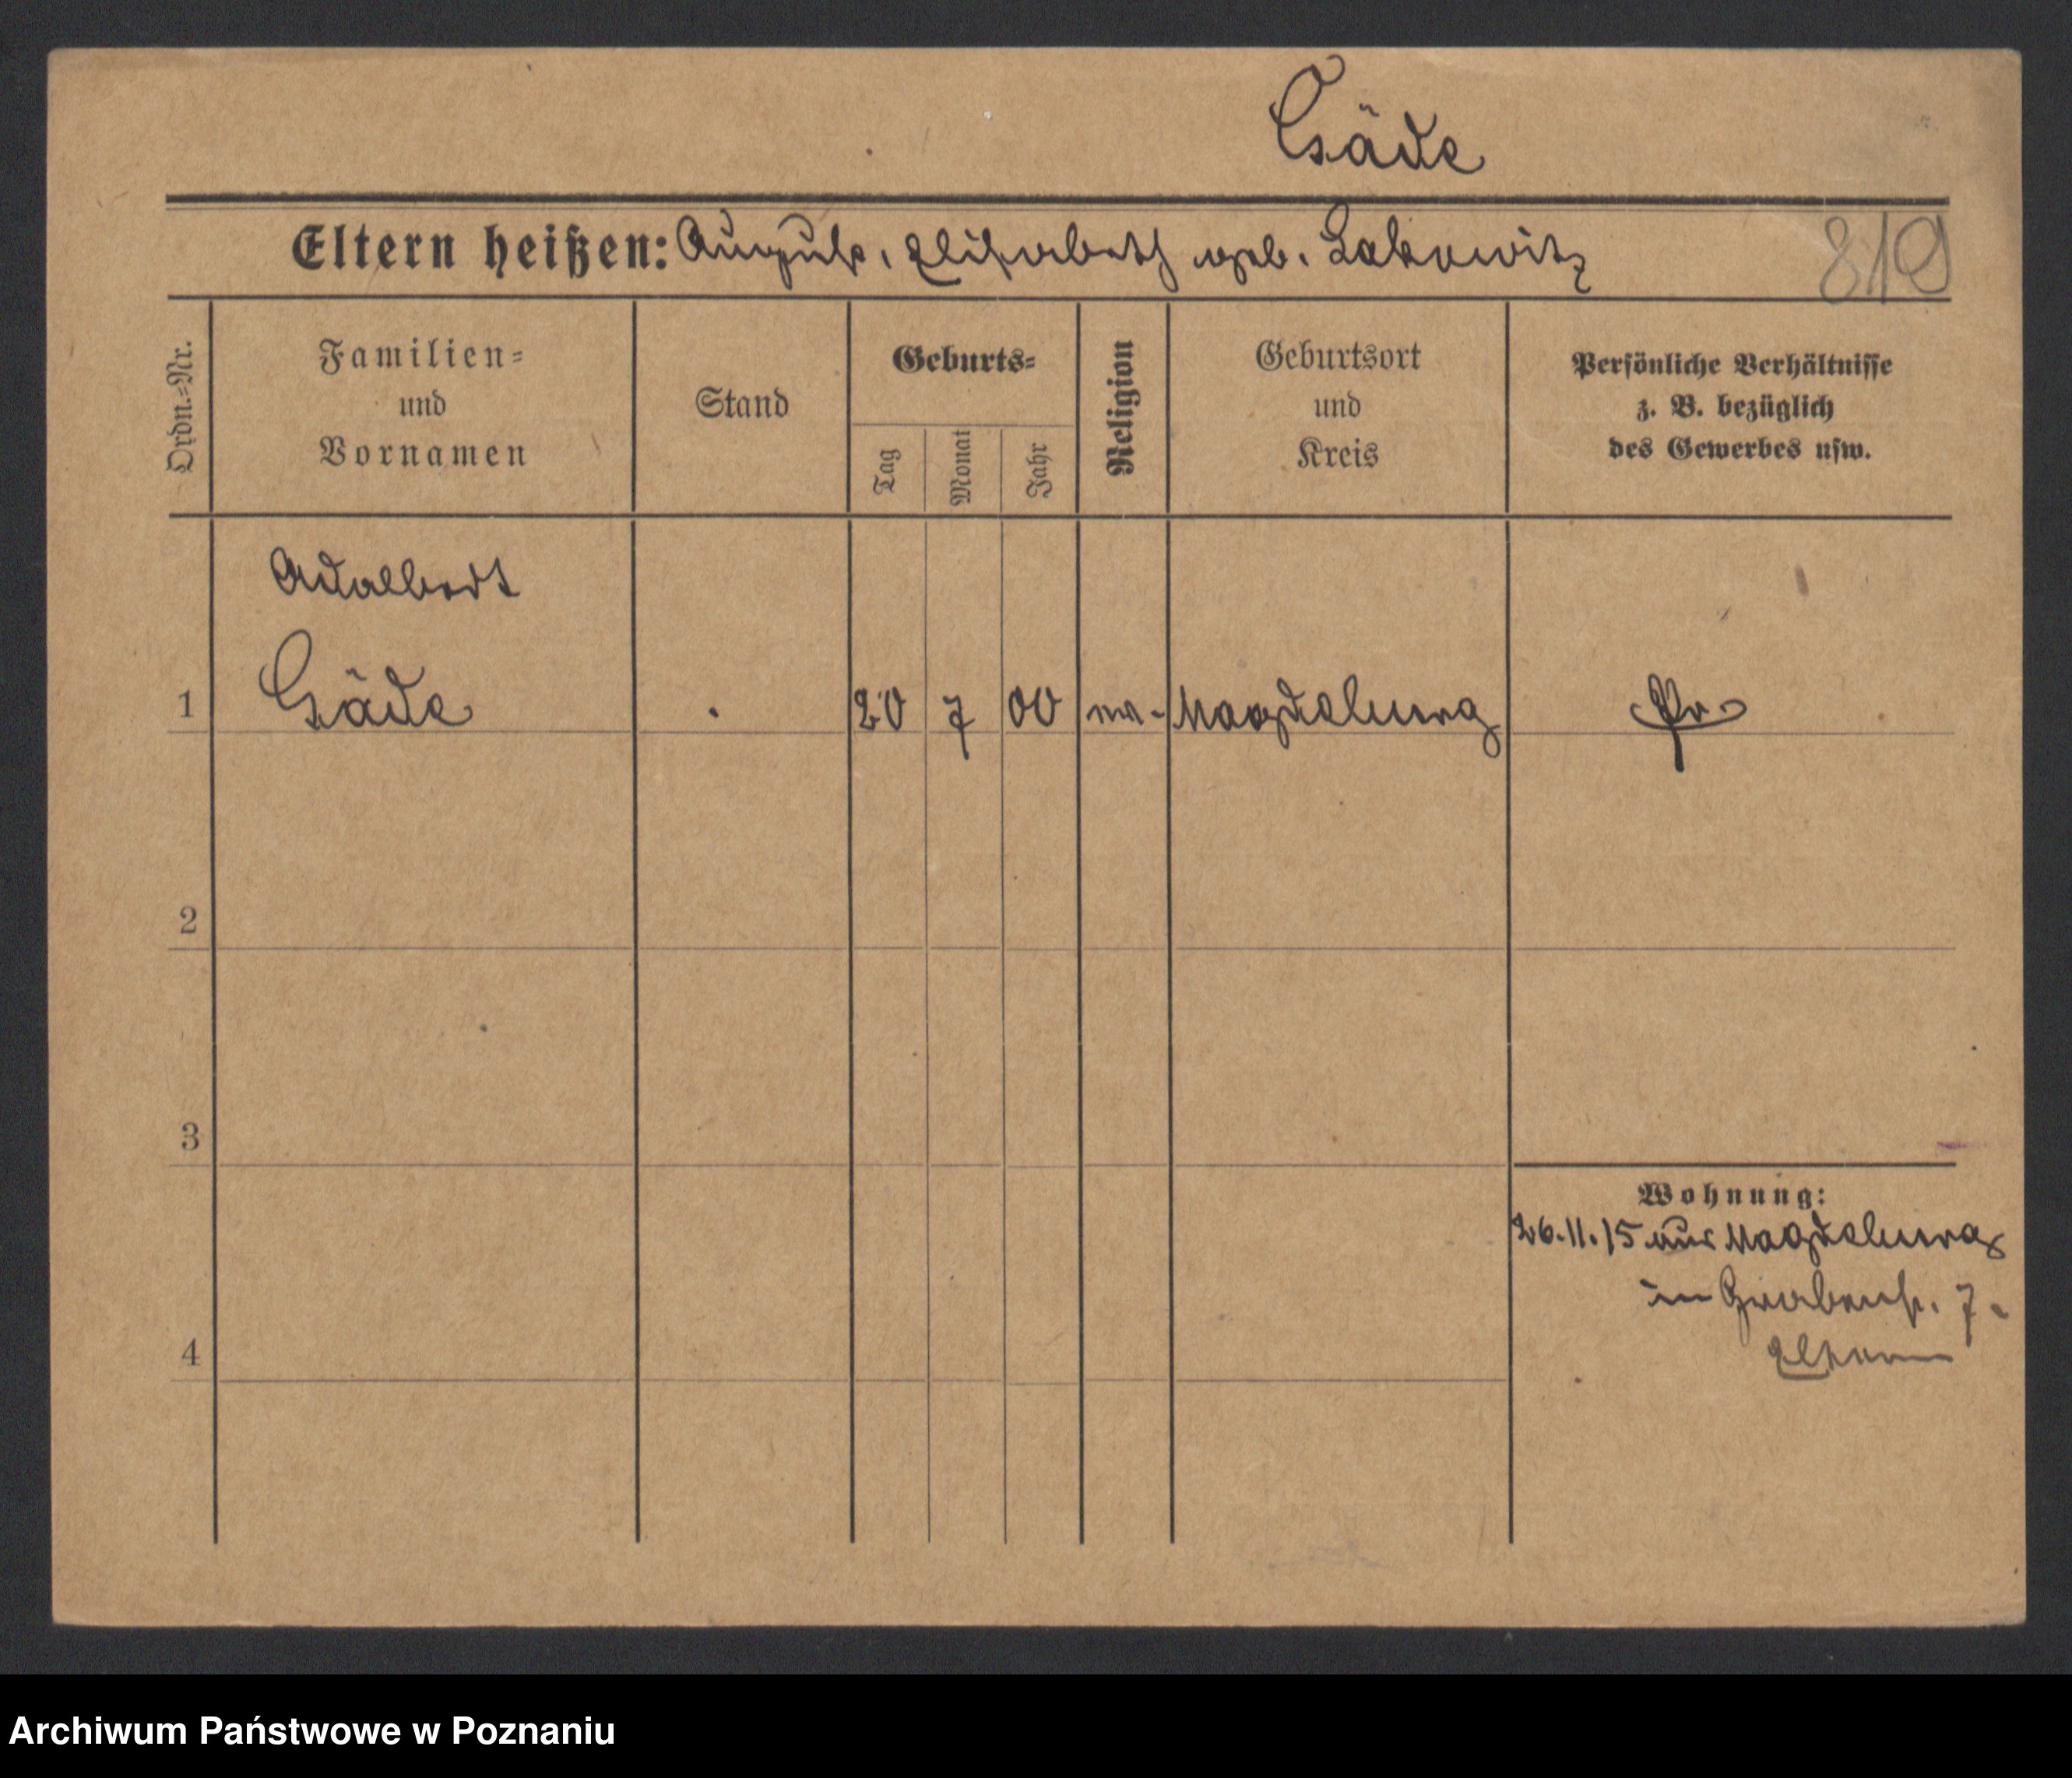 Gäde
Eltern heißen: August, Elisabeth geb. Lakowitz
819
Ordn.=Nr.
Familien=
und
Vornamen
Stand
Geburts=
Tag
Monat
Jahr
Religion
Geburtsort
und
Kreis
Persönliche Verhältnisse
z. B. bezüglich
des Gewerbes usw.
Adalbert
1 Gäde 20 7 00 Magdeburg Pr.
2
3
4
Wohnung:
26.11.15 aus Magdeburg
in Grabenst. 7.
Eltern
Archiwum Państwowe w Poznaniu